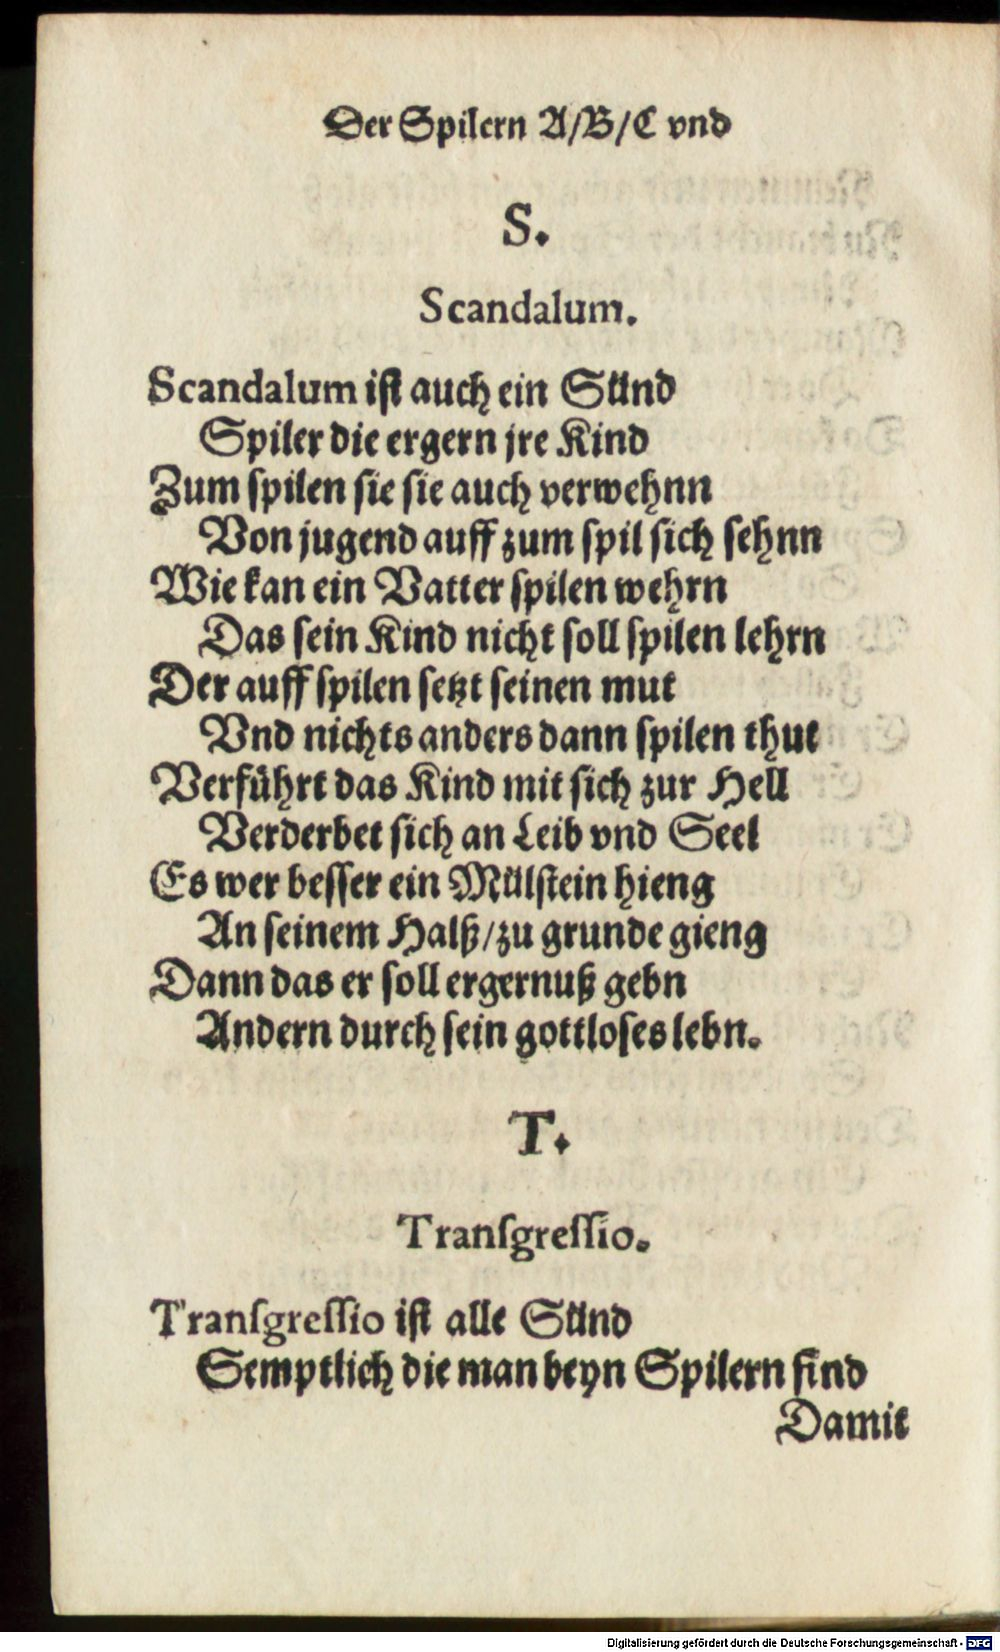 Der Spilern A/B/C vnd
S.
Scandalum.
Scandalum iſt auch ein Sünd
Spiler die ergern jre Kind
Zum ſpilen ſie ſie auch verwehnn
Von jugend auff zum ſpil ſich ſehnn
Wie kan ein Vatter ſpilen wehrn
Das ſein Kind nicht ſoll ſpilen lehrn
Der auff ſpilen ſetzt ſeinen mut
Vnd nichts anders dann ſpilen thut
Verführt das Kind mit ſich zur Hell
Verderbet ſich an Leib vnd Seel
Es wer beſſer ein Mülſtein hieng
An ſeinem Halß/zu grunde gieng
Dann das er ſoll ergernuß gebn
Andern durch ſein gottloſes lebn.
T.
Tranſgreſſio.
Tranſgreſſio iſt alle Sünd
Semptlich die man beyn Spilern find
Damit
Digitalisierung gefördert durch die Deutsche Forschungsgemeinschaft - DFG